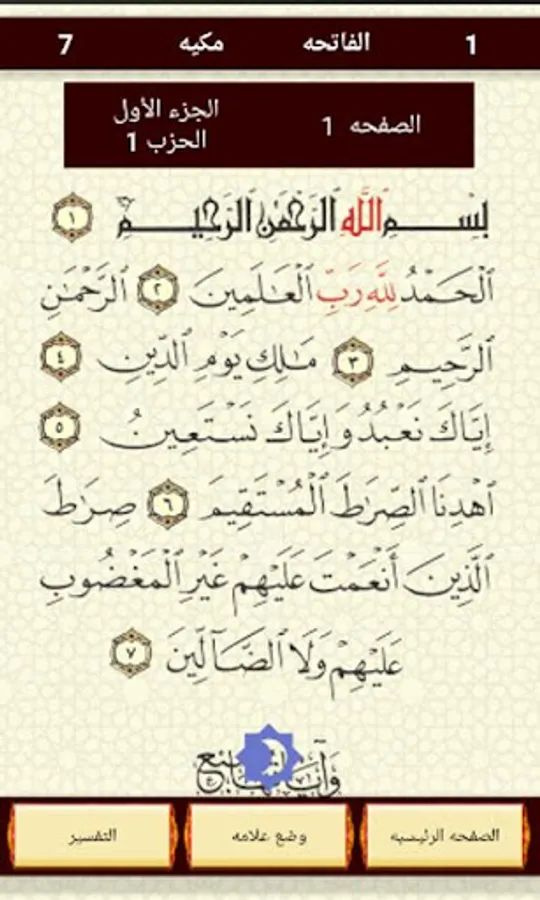 1 الفاتحه مكيه 7
الصفحه 1
الجزء الأول
الحزب 1
بِسْمِ ٱللَّهِ ٱلرَّحْمَٰنِ ٱلرَّحِيمِ ١
ٱلْحَمْدُ لِلَّهِ رَبِّ ٱلْعَٰلَمِينَ ٢ ٱلرَّحْمَٰنِ
ٱلرَّحِيمِ ٣ مَٰلِكِ يَوْمِ ٱلدِّينِ ٤
إِيَّاكَ نَعْبُدُ وَإِيَّاكَ نَسْتَعِينُ ٥
ٱهْدِنَا ٱلصِّرَٰطَ ٱلْمُسْتَقِيمَ ٦ صِرَٰطَ
ٱلَّذِينَ أَنْعَمْتَ عَلَيْهِمْ غَيْرِ ٱلْمَغْضُوبِ
عَلَيْهِمْ وَلَا ٱلضَّآلِّينَ ٧
الصفحه الرئيسيه
وضع علامه
التفسير